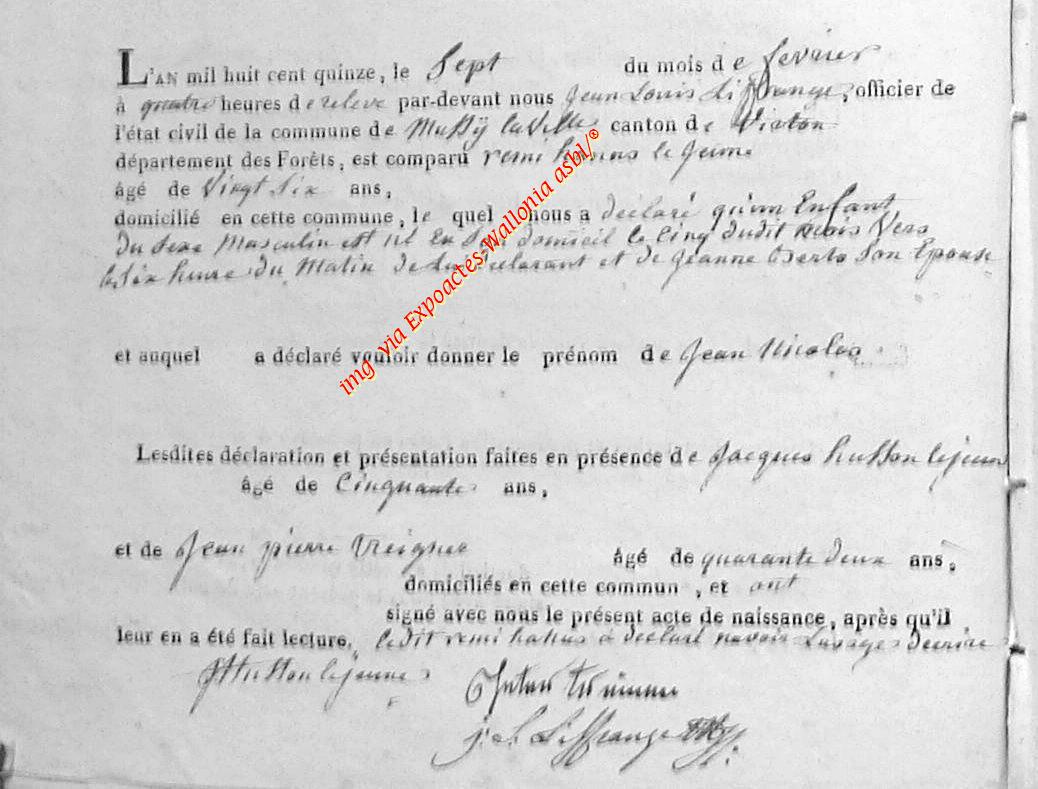 L'AN mil huit cent quinze, le Sept du mois de fevrier
à quatre heures de releve par-devant nous Jean Louis Liffrange, officier de
l'état civil de la commune de Mussÿ laville canton de Virton
département des Forêts, est comparu remi hanus le jeune
âgé de Vingt Six ans,
domicilié en cette commune, le quel nous a déclaré qu'un Enfant
du Sexe Masculin est né En Son domicil le Cinq dudit mois Vers
les Six heure du Matin de lui declarant et de Jeanne Son Epouse
et auquel a déclaré vouloir donner le prénom de Jean Nicolas
Lesdites déclaration et présentation faites en présence de Jacques husson lejeune
âgé de Cinquante ans,
et de Jean pierre âgé de quarante deux ans,
domiciliés en cette commun, et ont
signé avec nous le présent acte de naissance, après qu'il
leur en a été fait lecture. ledit remi hanus a declaré navoir Lusage decrire
JHusson lejeune
j. l. Liffrange
img via Expoactes Wallonia asbl/®